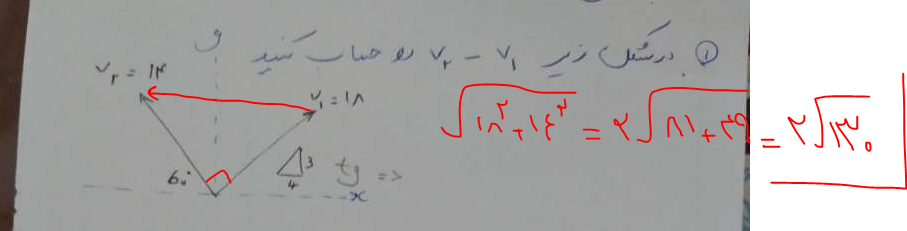 ① در شکل زیر v₂ - v₁ رو حساب کنید
y
v₂ = ۱۴
v₁ = ۱۸
60°
3
4
tg =>
x
√۱۸²+۱۴² = ۲√۸۱+۴۹ = ۲√۱۳۰